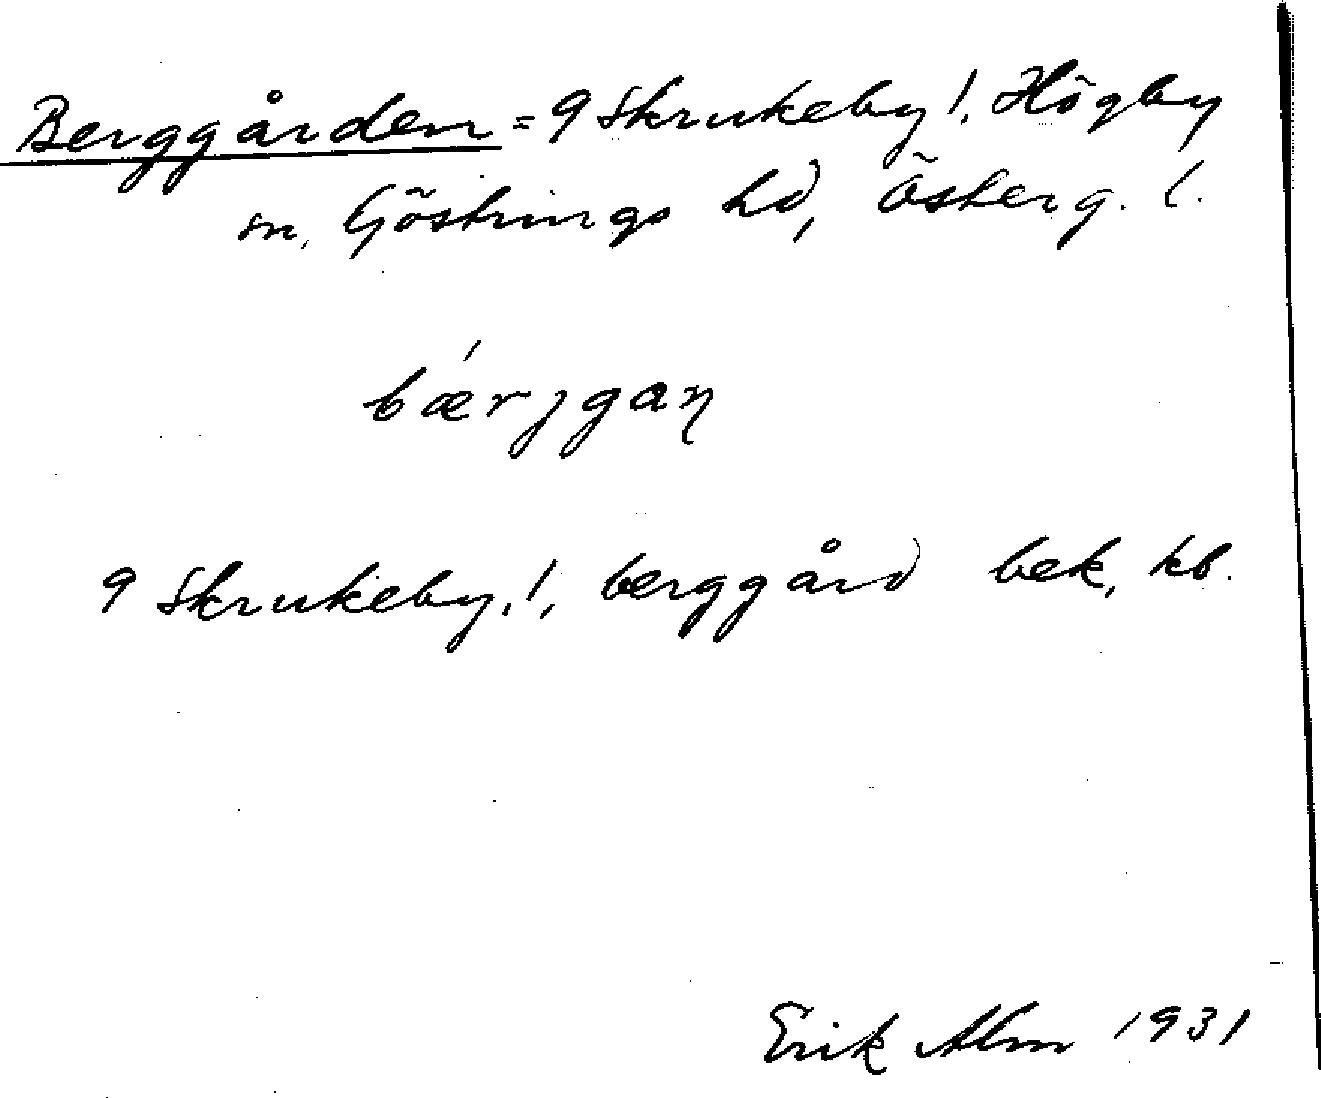 Berggården = 9 Skrukeby !, Högby
sn, Göstrings hd, Österg. l.
bǽrjgaɳ
9 Skrukeby, !, berggård bek, kb.
Erik Alm 1931